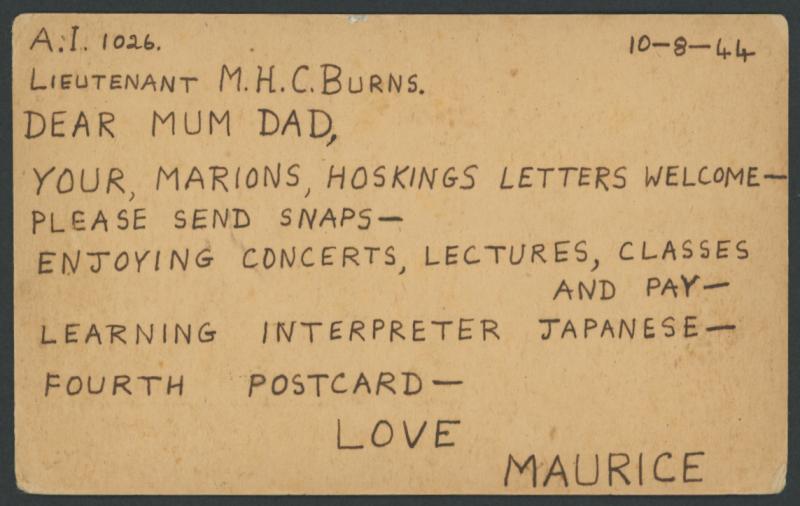 A.I. 1026. 10-8-44
LIEUTENANT M.H.C. BURNS.
DEAR MUM DAD,
YOUR, MARIONS, HOSKINGS LETTERS WELCOME—
PLEASE SEND SNAPS—
ENJOYING CONCERTS, LECTURES, CLASSES
AND PAY—
LEARNING INTERPRETER JAPANESE—
FOURTH POSTCARD—
LOVE
MAURICE